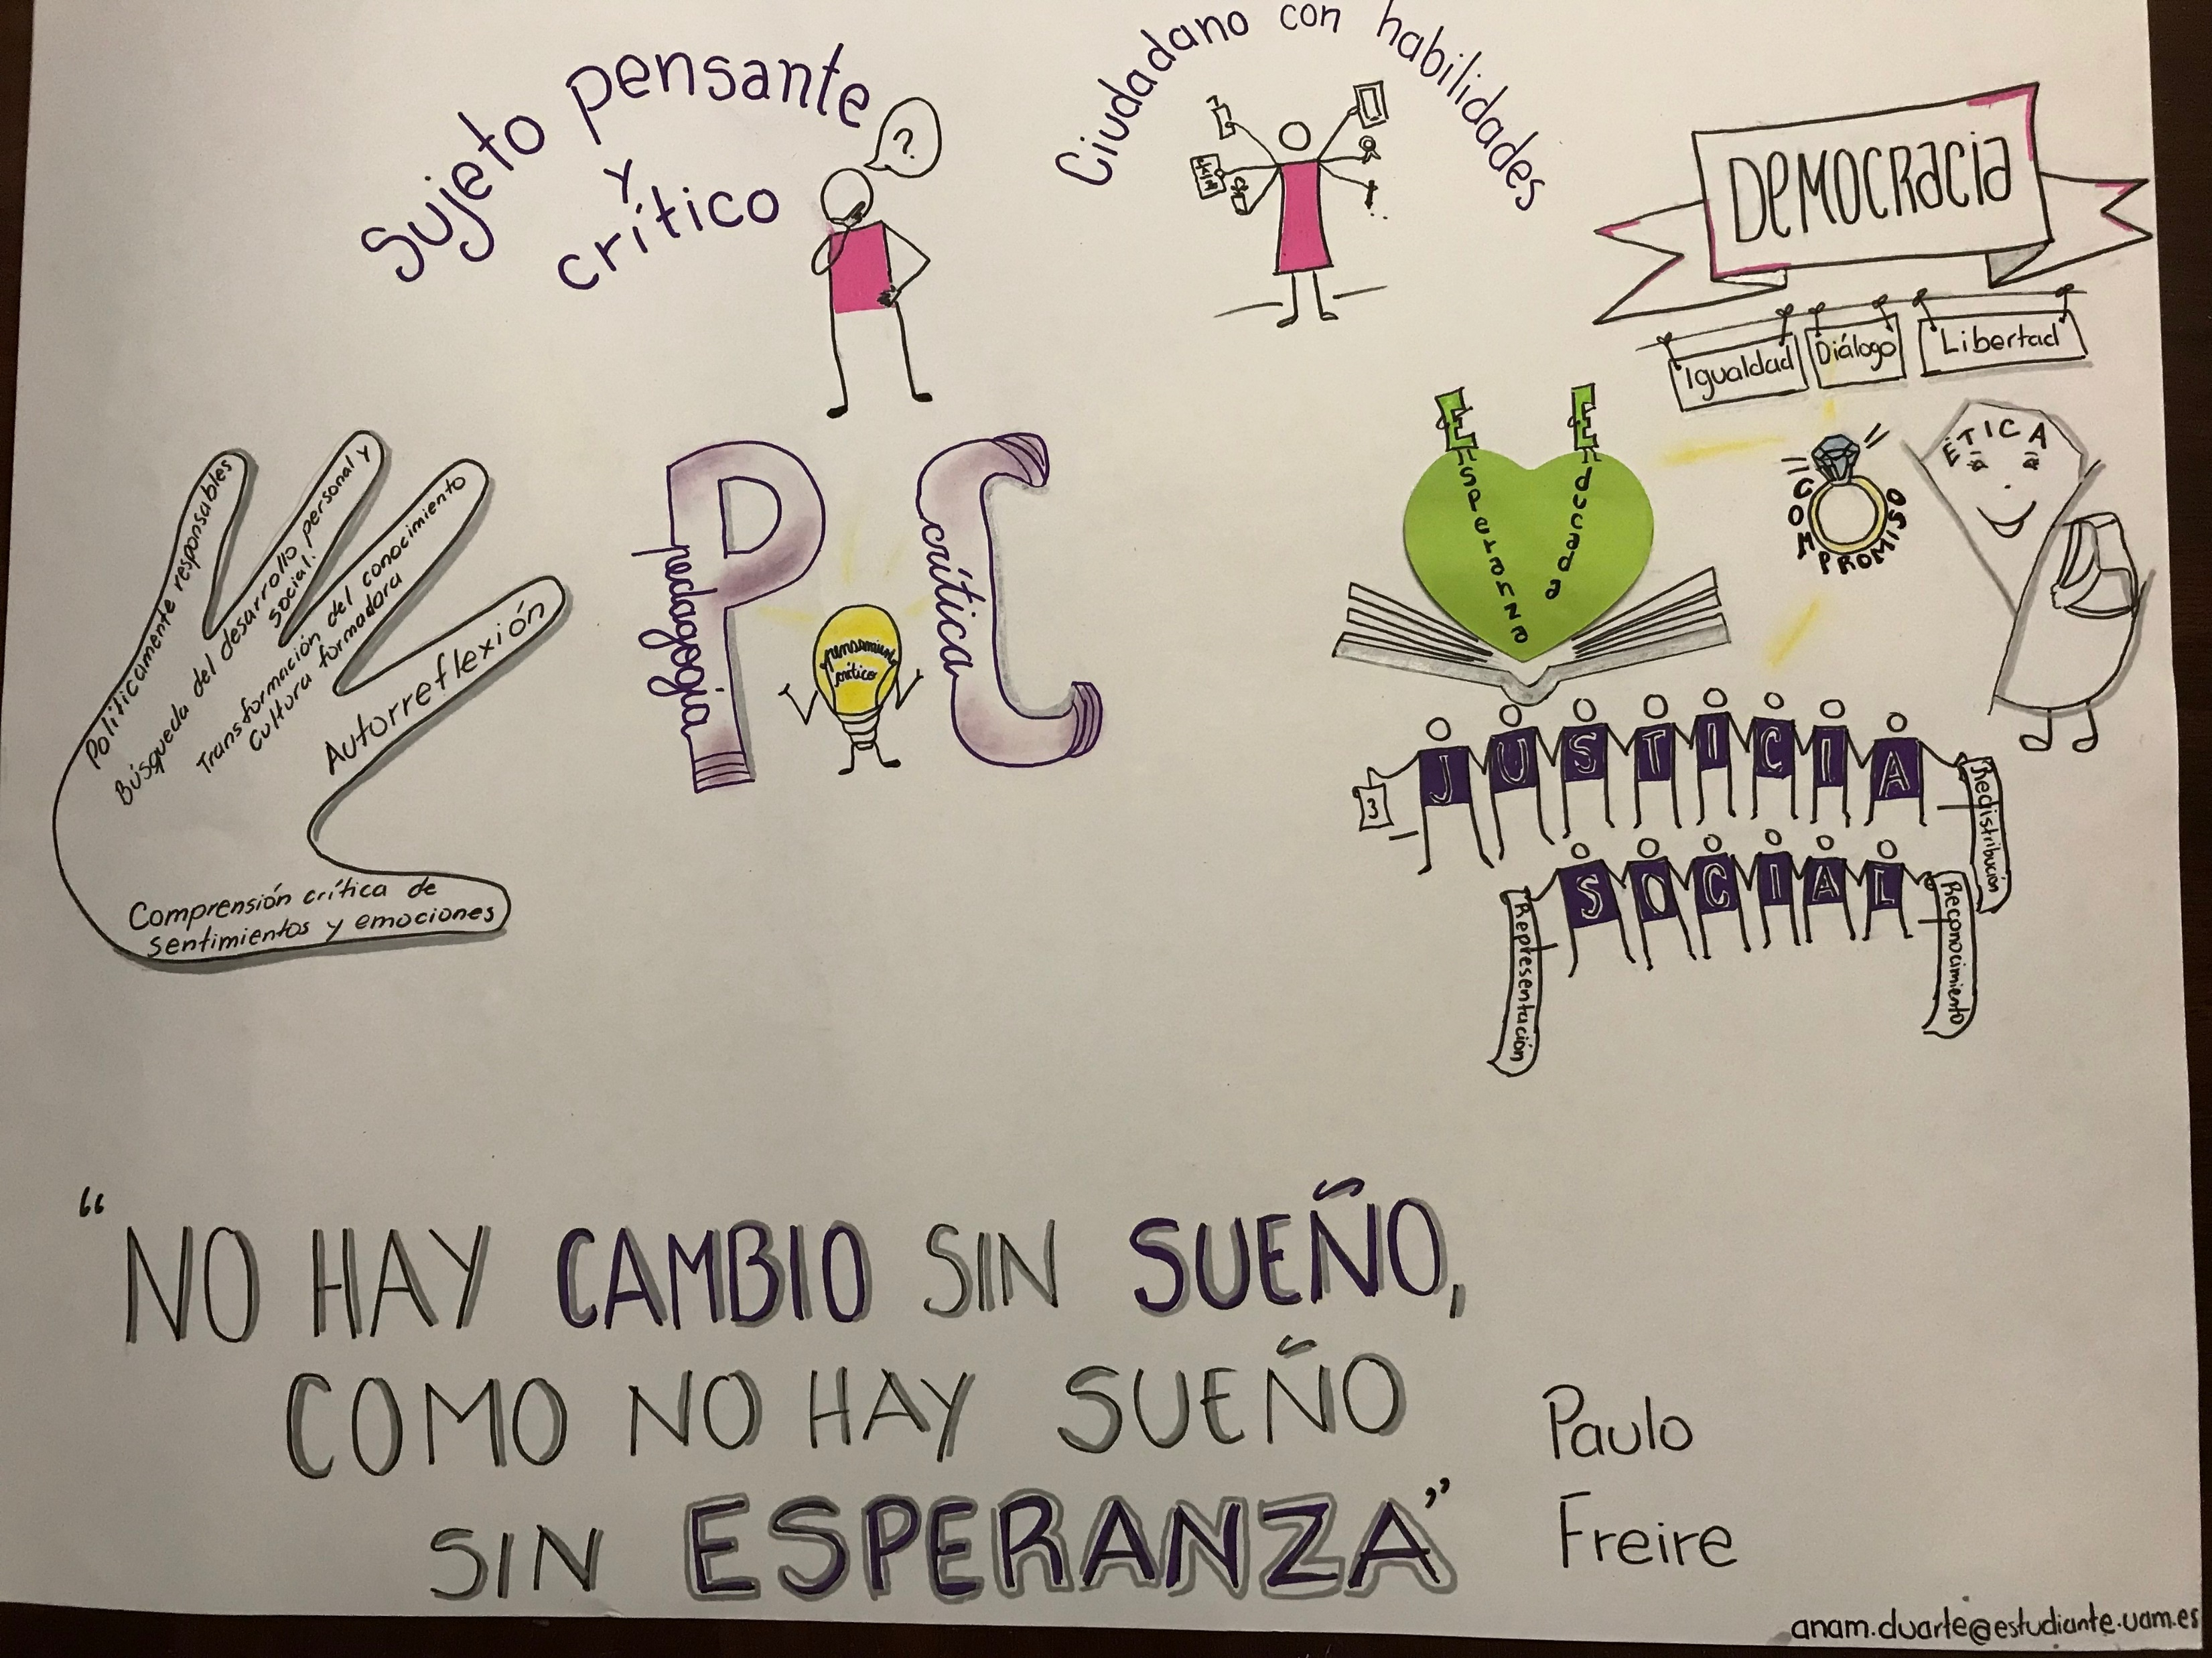 Sujeto pensante
y
crítico
?
Ciudadano con habilidades
DEMOCRACIA
Igualdad
Diálogo
Libertad
Políticamente responsables
Búsqueda del desarrollo personal y
social.
Transformación del conocimiento
cultura formadora
Autorreflexión
Comprensión crítica de
sentimientos y emociones
P
pedagogía
C
crítica
pensamiento
crítico
Esperanza
Educada
COMPROMISO
ÉTICA
3
JUSTICIA
Redistribución
SOCIAL
Representación
Reconocimiento
“NO HAY CAMBIO SIN SUEÑO,
COMO NO HAY SUEÑO
SIN ESPERANZA”
Paulo
Freire
anam.duarte@estudiante.uam.es